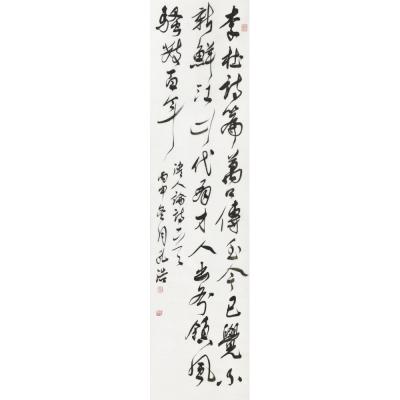 李杜詩篇萬口傳至今已覺不
新鮮江山代有才人出各領風
騷數百年
清人論詩
丙申冬月